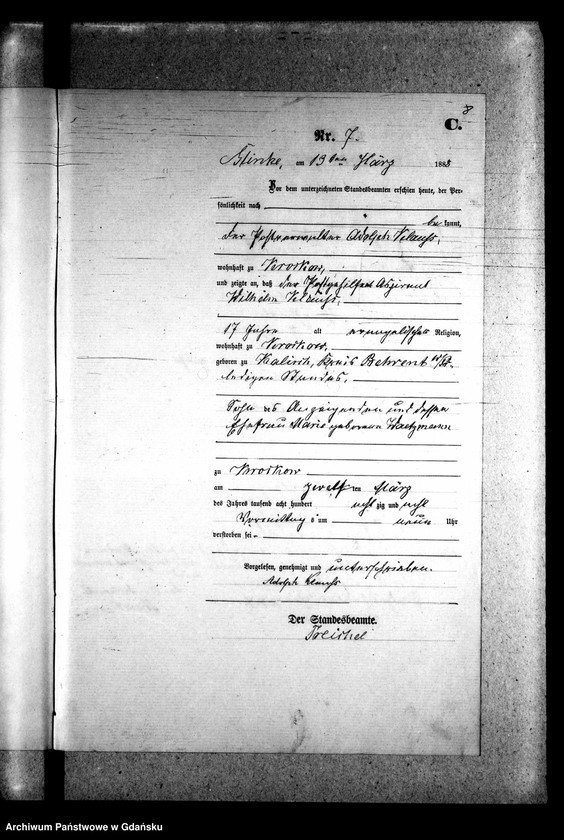 8
C.
Nr. 7.
am 13ten März 1888
Vor dem unterzeichneten Standesbeamten erschien heute, der Per-
sönlichkeit nach
bekannt,
der Postverwalter Adolph
wohnhaft zu
und zeigte an, daß der Postgehilfe Aspirant
Wilhelm
17 Jahre alt evangelischer Religion,
wohnhaft zu
geboren zu Kalisch, Kreis Behrent
ledigen Standes,
Sohn des Anzeigenden und dessen
Ehefrau Marie geborenen
zu
am zwölften März
des Jahres tausend acht hundert acht zig und acht
Vormittags um neun Uhr
verstorben sei.
Vorgelesen, genehmigt und unterschrieben.
Adolph
Der Standesbeamte.
Treichel
Archiwum Państwowe w Gdańsku